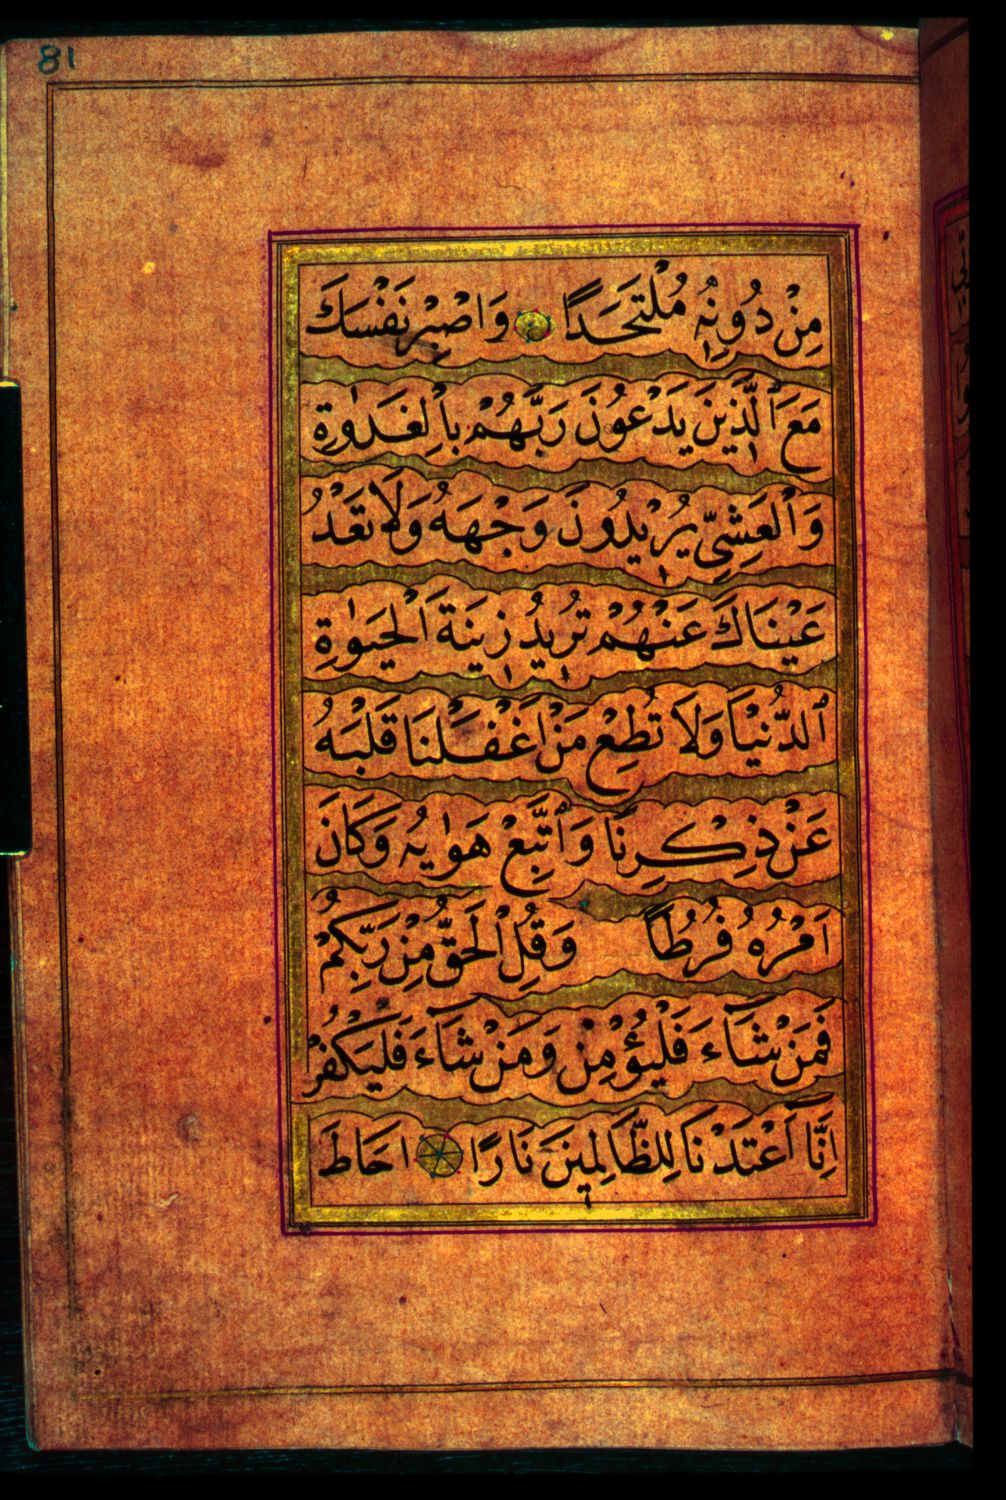 81
مِنْ دُونِهٖ مُلْتَحَدًا وَاصْبِرْ نَفْسَكَ
مَعَ ٱلَّذِينَ يَدْعُونَ رَبَّهُمْ بِالْغَدٰوةِ
وَٱلْعَشِىِّ يُرِيْدُونَ وَجْهَهُ وَلَا تَعْدُ
عَيْنَاكَ عَنْهُمْ تُرِيْدُ زِيْنَةَ الْحَيٰوةِ
ٱلدُّنْيَا وَلَا تُطِعْ مَنْ اَغْفَلْنَا قَلْبَهُ
عَنْ ذِكْرِنَا وَٱتَّبَعْ هَوٰيهُ وَكَانَ
اَمْرُهُ فُرُطًا وَقُلِ الْحَقُّ مِنْ رَبِّكُمْ
فَمَنْ شَآءَ فَلْيُؤْمِنْ وَمَنْ شَآءَ فَلْيَكْفُرْ
اِنَّآ اَعْتَدْنَا لِلظَّالِمِيْنَ نَارًا اَحَاطَ